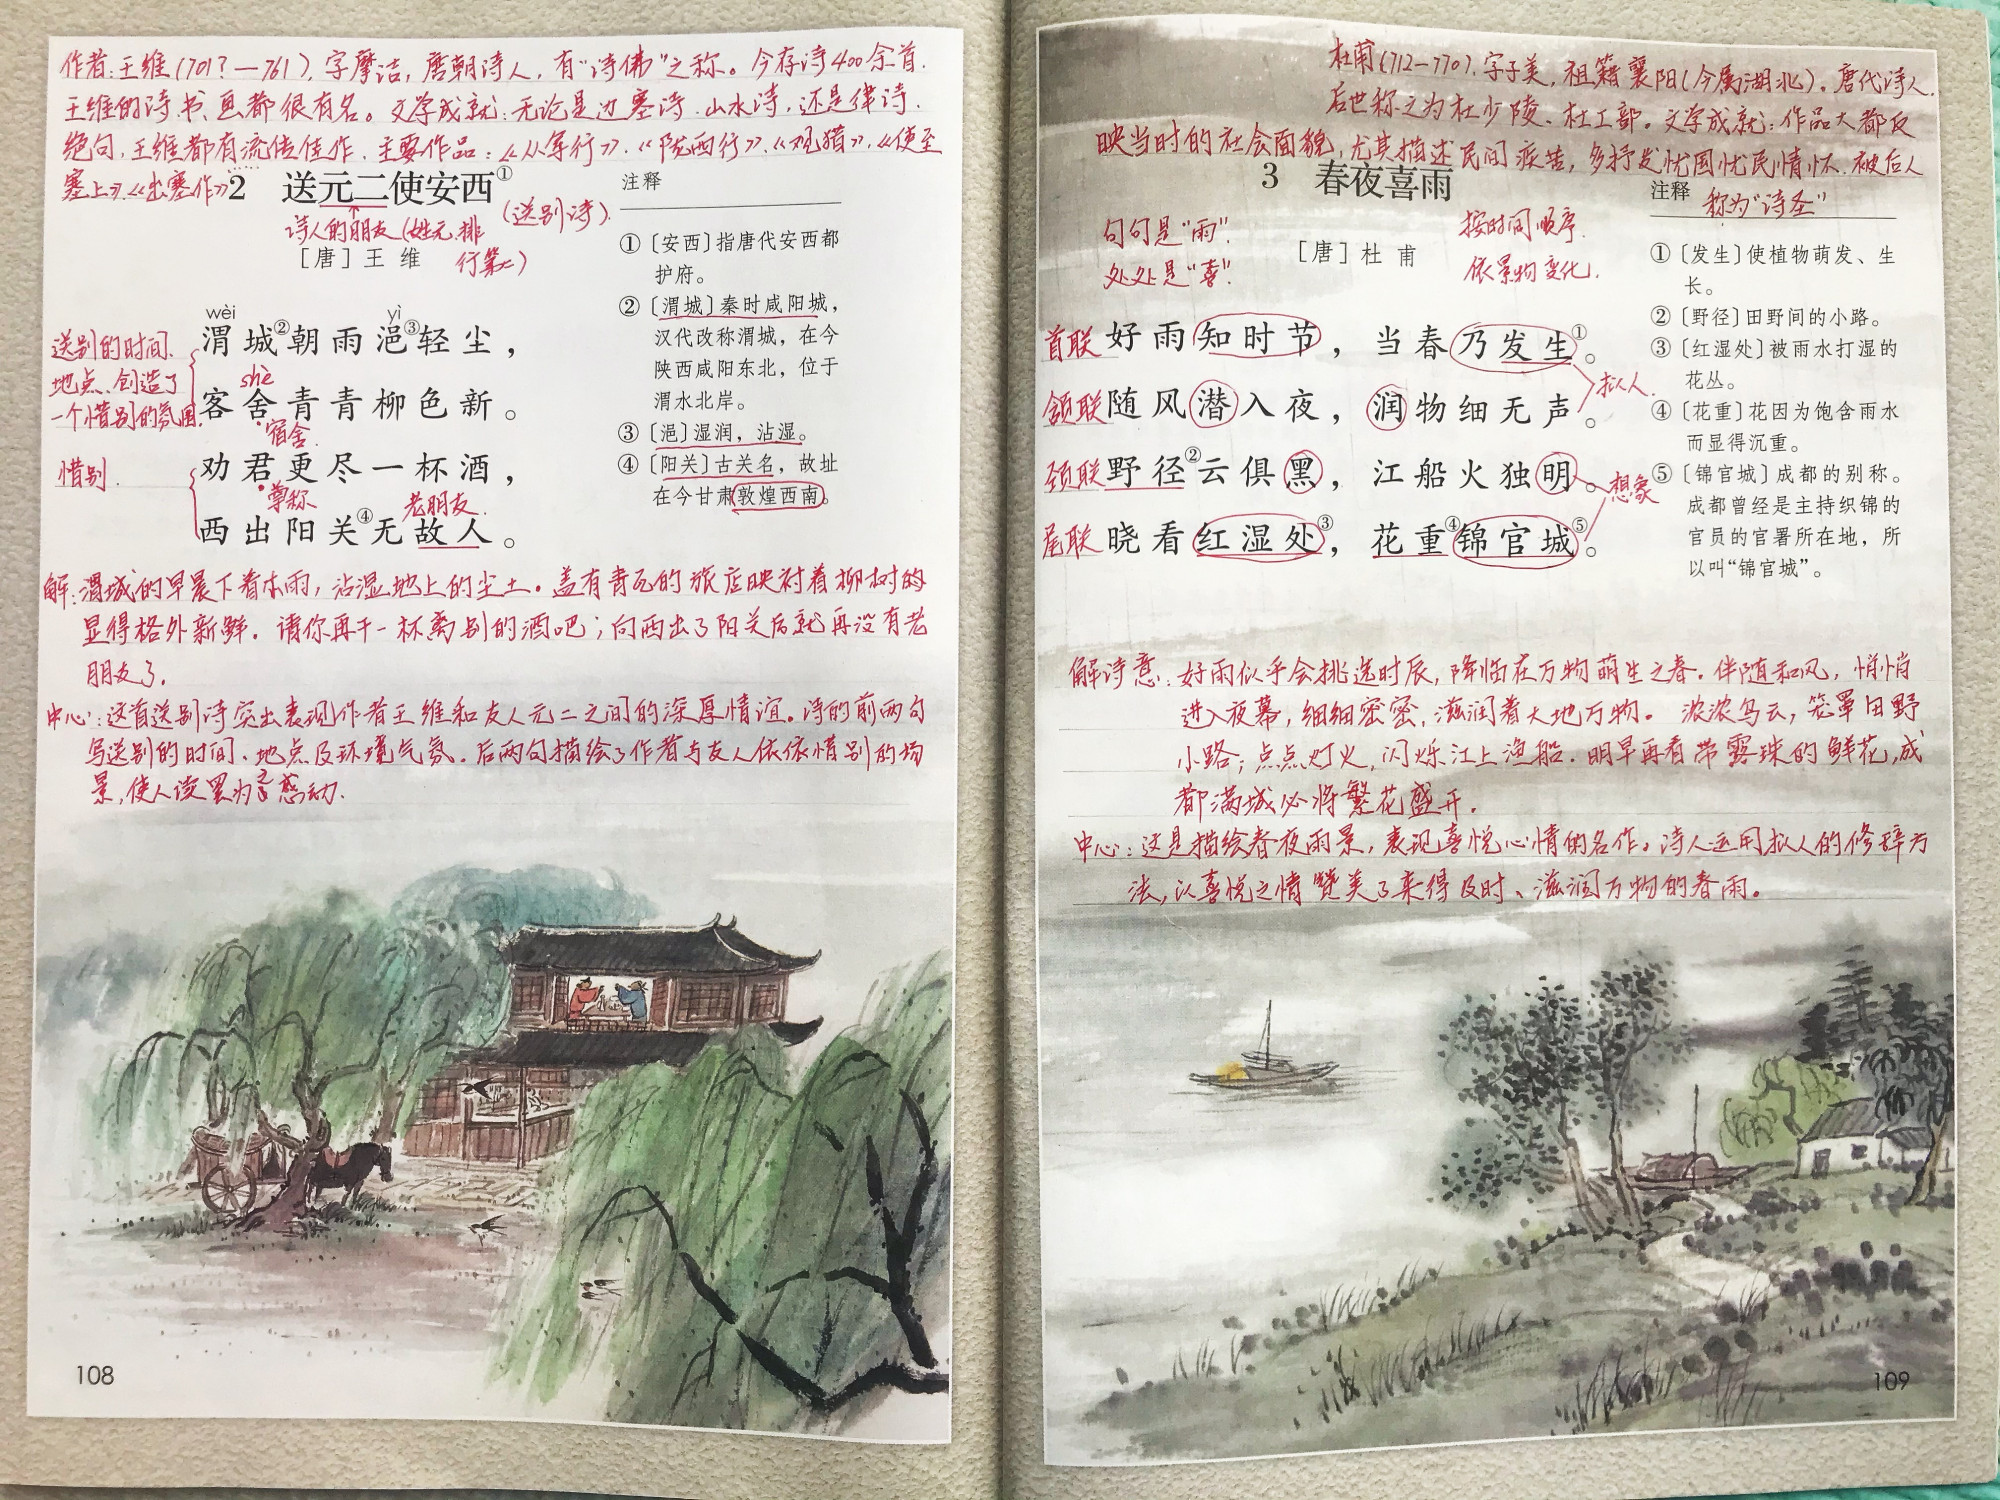 作者:王维(701?—761),字摩诘,唐朝诗人,有"诗佛"之称。今存诗400余首.
王维的诗.书.画都很有名。文学成就:无论是边塞诗.山水诗,还是律诗.
绝句,王维都有流传佳作.主要作品:《从军行》.《陇西行》.《观猎》.《使至
塞上》.《出塞作》
2 送元二使安西①
(送别诗).
诗人的朋友(姓元.排
行第二)
[唐]王 维
wèi yì
渭城②朝雨浥③轻尘,
shè
客舍青青柳色新。
宿舍.
劝君更尽一杯酒,
尊称
老朋友.
西出阳关④无故人。
送别的时间.
地点.创造了
一个惜别的氛围.
惜别.
注释
①〔安西〕指唐代安西都
护府。
②〔渭城〕秦时咸阳城,
汉代改称渭城,在今
陕西咸阳东北,位于
渭水北岸。
③〔浥〕湿润,沾湿。
④〔阳关〕古关名,故址
在今甘肃敦煌西南。
解:渭城的早晨下着小雨,沾湿地上的尘土。盖有青瓦的旅店映衬着柳树的
显得格外新鲜.请你再干一杯离别的酒吧;向西出了阳关后就再没有老
朋友了.
中心:这首送别诗突出表现作者王维和友人元二之间的深厚情谊。诗的前两句
写送别的时间、地点及环境气氛.后两句描绘了作者与友人依依惜别的场
景,使人读罢为之感动.
108
杜甫(712—770).字子美.祖籍襄阳(今属湖北)。唐代诗人.
后世称之为杜少陵、杜工部。文学成就:作品大都反
映当时的社会面貌,尤其描述民间疾苦,多抒发忧国忧民情怀.被后人
称为"诗圣"
3 春夜喜雨
句句是"雨".
处处是"喜".
[唐]杜 甫
按时间顺序.
依景物变化.
首联 好雨知时节,当春乃发生①。
颔联 随风潜入夜,润物细无声。
拟人.
颈联 野径②云俱黑,江船火独明。
想象
尾联 晓看红湿处③,花重④锦官城⑤。
注释
①〔发生〕使植物萌发、生
长。
②〔野径〕田野间的小路。
③〔红湿处〕被雨水打湿的
花丛。
④〔花重〕花因为饱含雨水
而显得沉重。
⑤〔锦官城〕成都的别称。
成都曾经是主持织锦的
官员的官署所在地,所
以叫"锦官城"。
解诗意:好雨似乎会挑选时辰,降临在万物萌生之春。伴随和风,悄悄
进入夜幕,细细密密,滋润着大地万物。浓浓乌云,笼罩田野
小路;点点灯火,闪烁江上渔船.明早再看带露珠的鲜花,成
都满城必将繁花盛开.
中心:这是描绘春夜雨景,表现喜悦心情的名作。诗人运用拟人的修辞方
法,以喜悦之情赞美了来得及时、滋润万物的春雨。
109